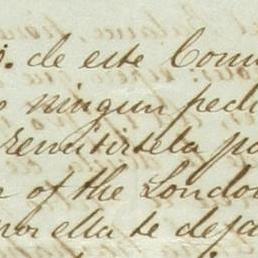 . de este Com
ningun ped
remitirtela p
of the London
por ella te deja